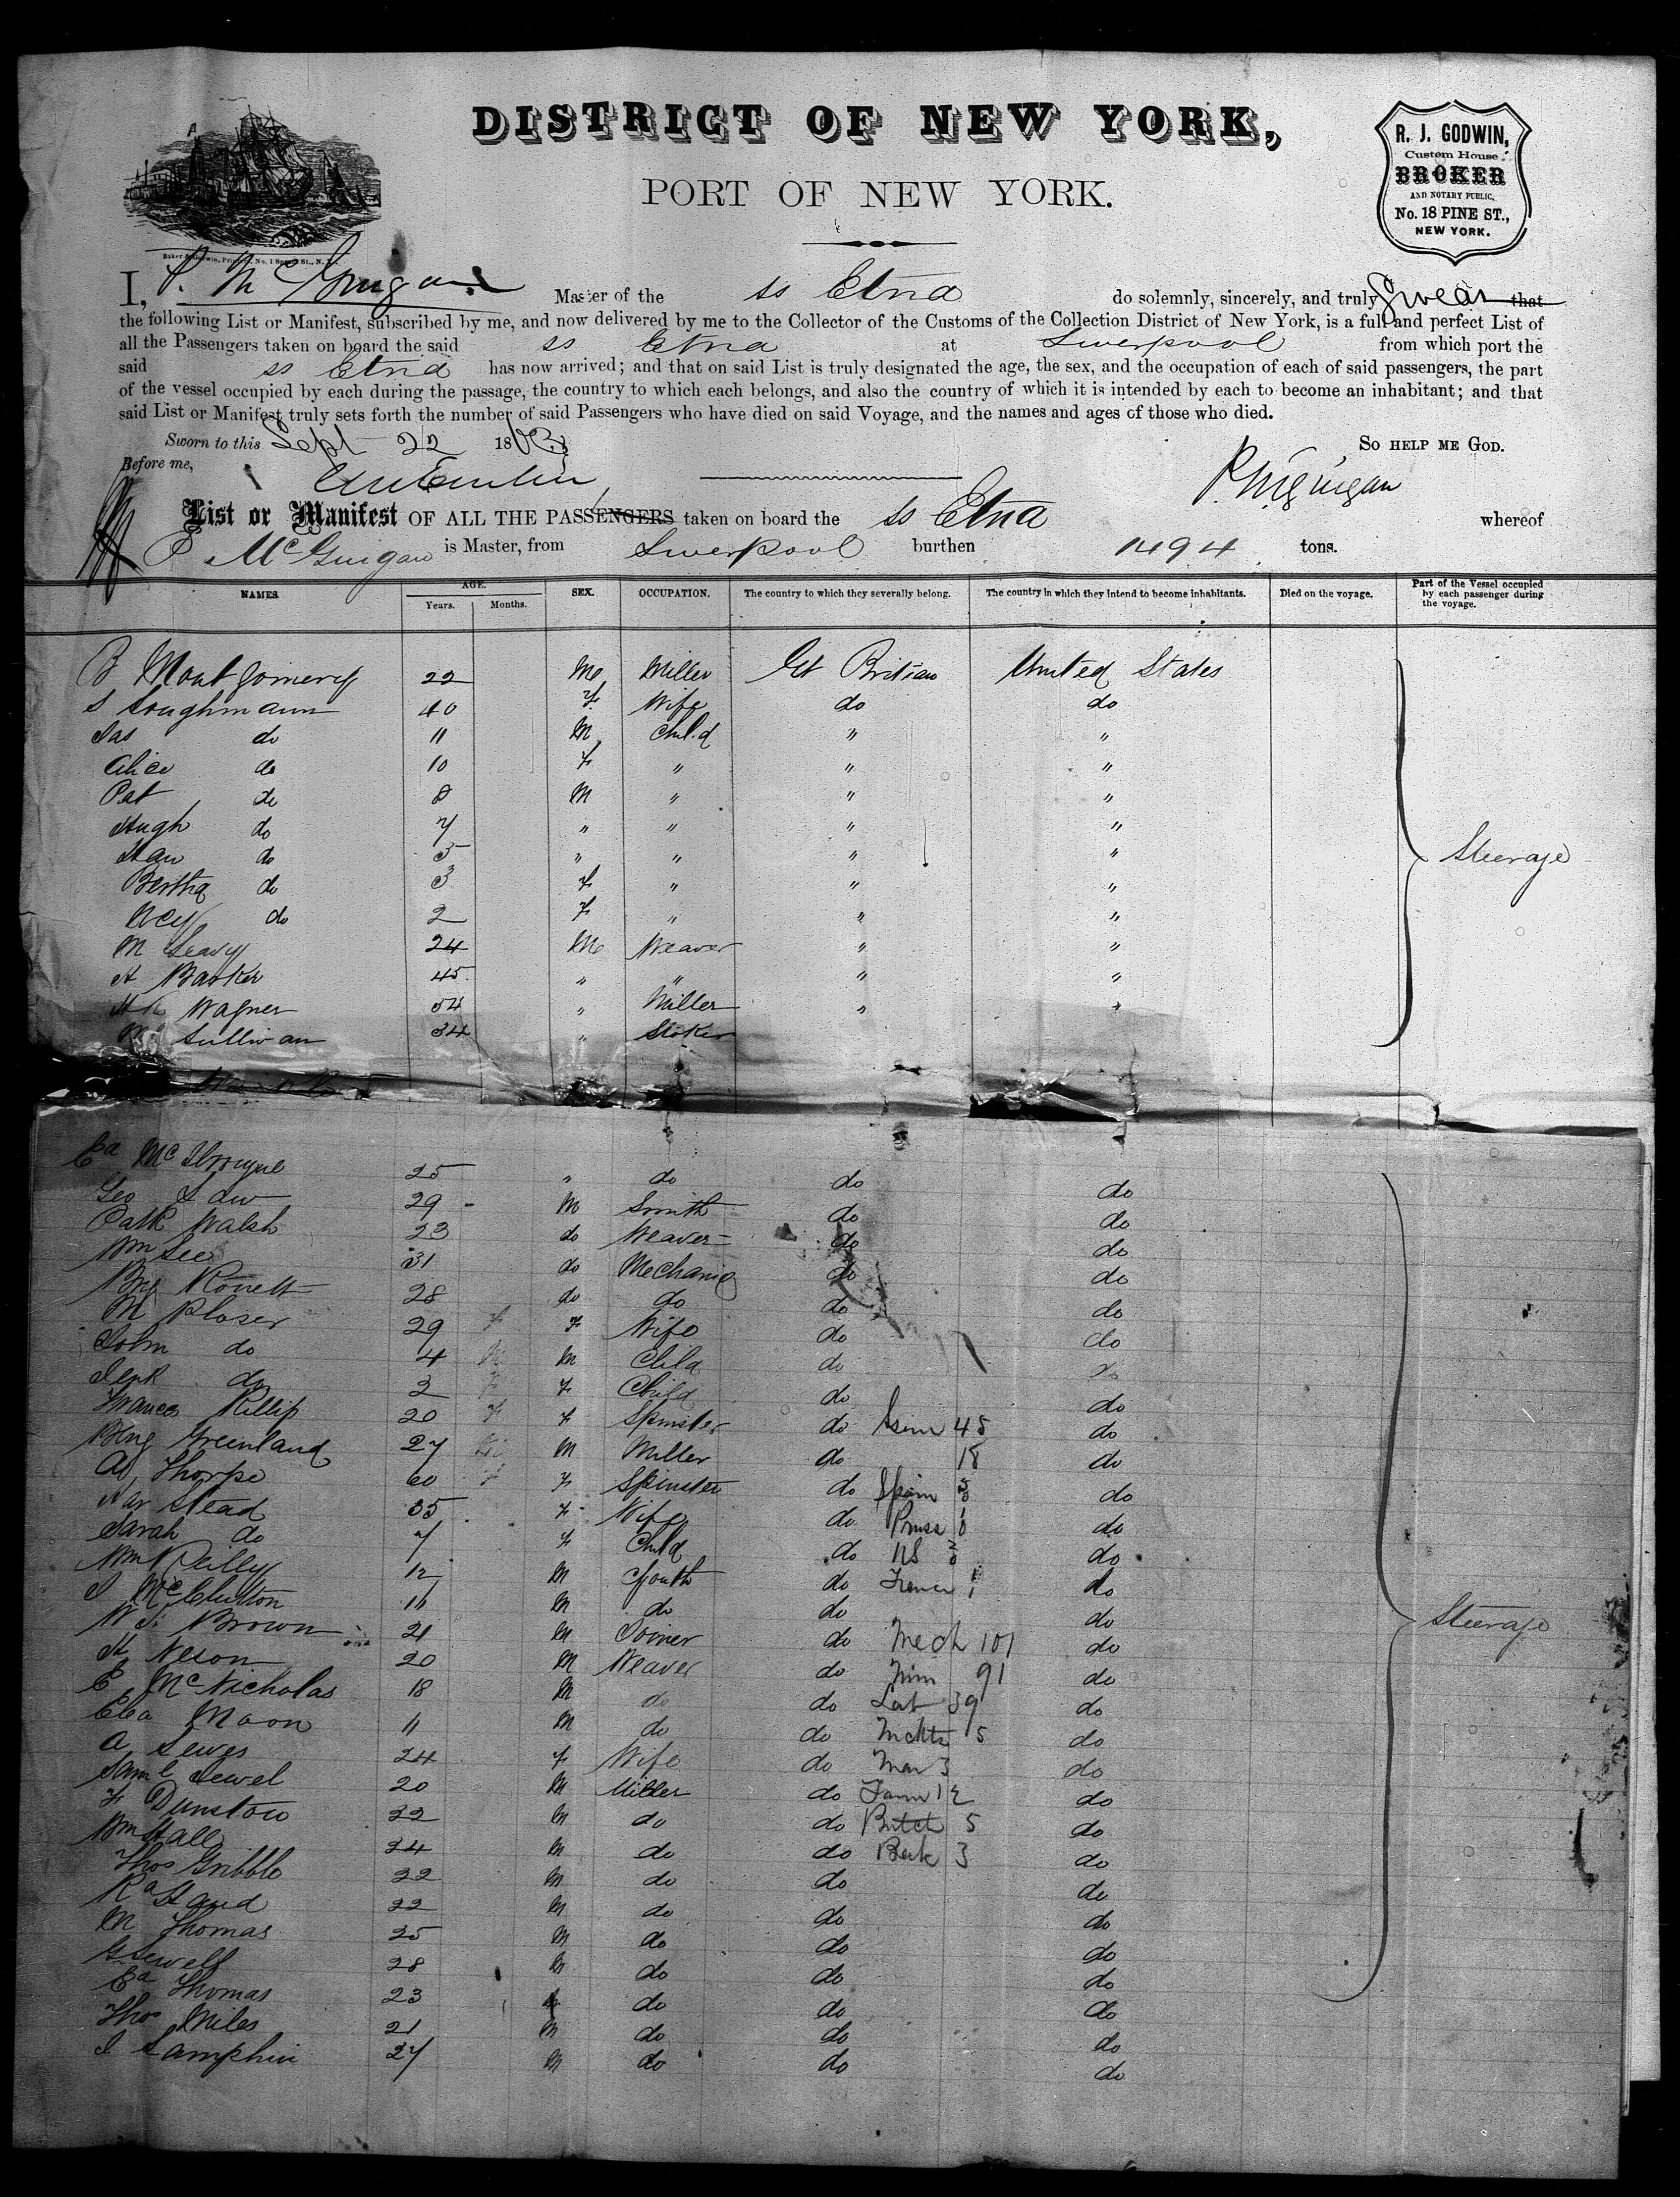 DISTRICT OF NEW YORK,
PORT OF NEW YORK.
R. J. GODWIN,
Custom House
BROKER
AND NOTARY PUBLIC,
No. 18 PINE ST.,
NEW YORK.
Baker & Godwin, Printers, No. 1 Spruce St., N. Y.
I, P. McGuigan Master of the ss Etna do solemnly, sincerely, and truly Swear that
the following List or Manifest, subscribed by me, and now delivered by me to the Collector of the Customs of the Collection District of New York, is a full and perfect List of
all the Passengers taken on board the said ss Etna at Liverpool from which port the
said ss Etna has now arrived; and that on said List is truly designated the age, the sex, and the occupation of each of said passengers, the part
of the vessel occupied by each during the passage, the country to which each belongs, and also the country of which it is intended by each to become an inhabitant; and that
said List or Manifest truly sets forth the number of said Passengers who have died on said Voyage, and the names and ages of those who died.
Sworn to this Sept 22 1863 SO HELP ME GOD.
Before me, P. McGuigan
List or Manifest OF ALL THE PASSENGERS taken on board the ss Etna whereof
P McGuigan is Master, from Liverpool burthen 1494 tons.
NAMES. AGE. Years. Months. SEX. OCCUPATION. The country to which they severally belong. The country in which they intend to become inhabitants. Died on the voyage. Part of the Vessel occupied by each passenger during the voyage.
B Montgomery 22 M Miller Gt Britian United States
S Loughmann 40 F Wife do do
Jas do 11 M Child " "
Alice do 10 F " " "
Pat do 8 M " " "
Hugh do 7 " " " "
Han do 5 " " " "
Bertha do 3 F " " "
do 2 F " " "
M Leavy 24 M Weaver " "
A Barker 45 " " " "
Wagner 54 " Miller " "
M Sullivan 34 " Stoker
Steerage
25 " do do do
Geo Law 29 M Smith do do
Patk Walsh 23 do Weaver do do
Wm Lee 31 do Mechanic do do
28 do do do do
M 29 F Wife do do
John do 4 M Child do do
do 2 F Child do do
Frances Killip 20 F Spinster do 45 do
Greenland 27 M Miller do 18 do
Thorpe 60 F Spinster do Spain do
Stead 35 F Wife do Pruss do
Sarah do 7 F Child do US do
Wm Reilly 12 M Youth do France 1 do
16 M do do do
Brown 21 M Joiner do Mech 101 do
20 M Weaver do 91 do
E McNicholas 18 M do do Lab 39 do
Moon 11 M do do Mchts 5 do
A 24 F Wife do Mar 3 do
Saml Jewel 20 M Miller do Farm 12 do
F 22 M do do Butch 5 do
Wm Hall 24 M do do 3 do
Thos Gribble 22 M do do do
22 M do do do
M Thomas 25 M do do do
28 M do do do
Thomas 23 do do do
Thos Miles 21 M do do do
27 M do do do
Steerage